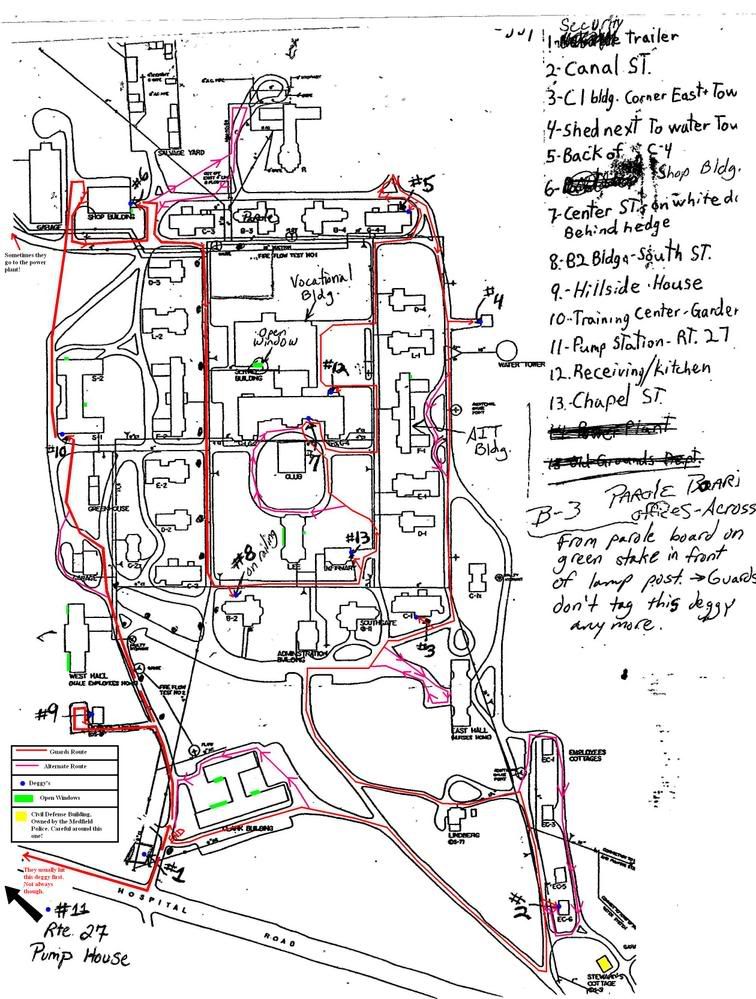 Security
1- trailer
2- Canal ST.
3- C1 bldg. Corner East + Tow
4- shed next To water Tow
5- Back of C-4
6- Shop Bldg.
7- Center ST. on white
Behind hedge
8- B2 Bldg - South ST.
9- Hillside House
10- Training Center - Garden
11- Pump Station - RT. 27
12. Receiving/kitchen
13. Chapel ST.
14 Power Plant
15 Old Grounds Dept.
B-3 PAROLE BOARD
offices - Across
From parole board on
green stake in front
of lamp post. → Guards
don't tag this deggy
any more.
SALVAGE YARD
R
#6
SHOP BUILDING
GARAGE
Sometimes they
go to the power
plant!
#5
C-3
Parole
B-3
C-4
FIRE FLOW TEST NO1
Vocational
Bldg.
D-3
D-4
#4
L-2
L-1
Open
Window
BUILDING
#12
WATER TOWER
S-2
#7
AIT
Bldg.
#10
S-1
F-2
F-1
CLUB
E-2
E-1
GREENHOUSE
D-2
D-1
LEE
#13
INFIRMARY
#8
on railing
GARAGE
B-2
ADMINISTRATION
BUILDING
SOUTHGATE
C-1
#3
WEST HALL
(MALE EMPLOYEES HOME)
FIRE FLOW
TEST NO2
EAST HALL
(NURSES HOME)
#9
EMPLOYEES
COTTAGES
EC-1
EC-3
EC-5
EC-6
Guards Route
Alternate Route
Deggy's
Open Windows
Civil Defense Building,
Owned by the Medfield
Police. Careful around this
one!
CLARK BUILDING
LINDBERG
#2
#1
They usually hit
this deggy first.
Not always
though.
HOSPITAL ROAD
#11
Rte. 27
Pump House
STEWARD'S
COTTAGE